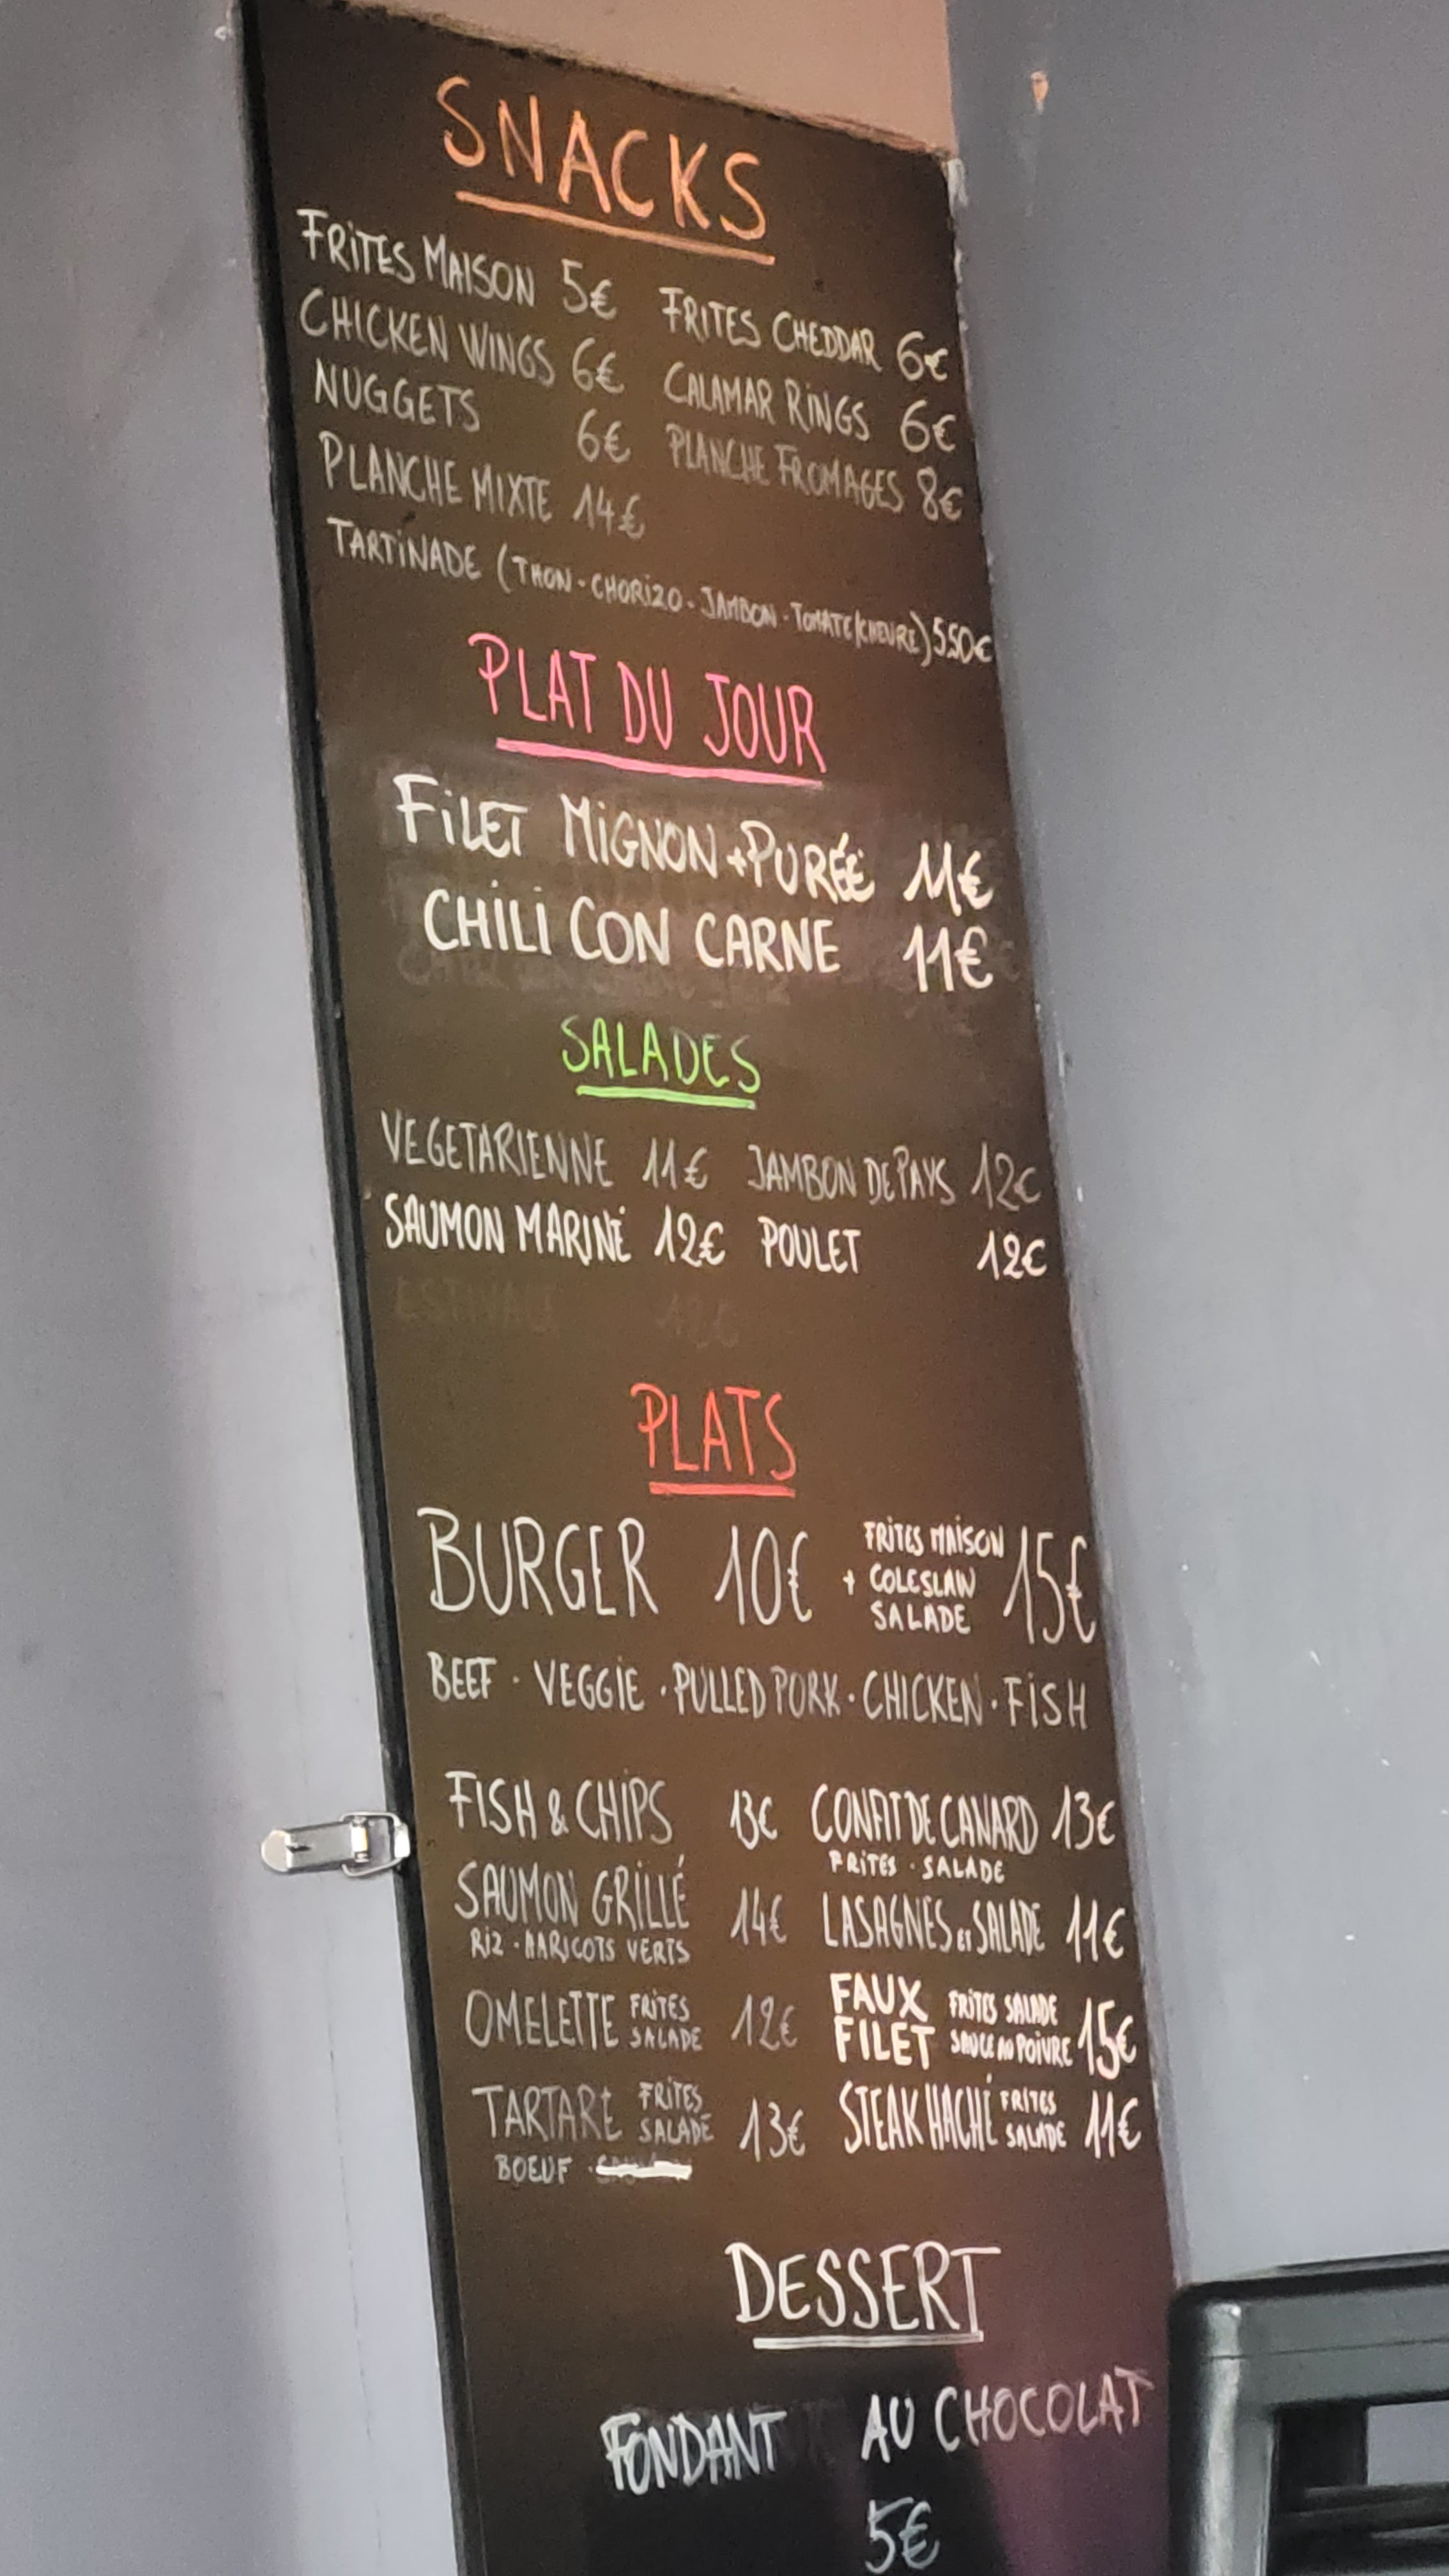 SNACKS
FRITES MAISON 5€ FRITES CHEDDAR 6€
CHICKEN WINGS 6€ CALAMAR RINGS 6€
NUGGETS 6€ PLANCHE FROMAGES 8€
PLANCHE MIXTE 14€
TARTINADE (THON - CHORIZO - JAMBON - TOMATE/CHEVRE) 550€
PLAT DU JOUR
FILET MIGNON + PURÉE 11€
CHILI CON CARNE 11€
SALADES
VEGETARIENNE 11€ JAMBON DE PAYS 12€
SAUMON MARINÉ 12€ POULET 12€
ESTIVALE 12€
PLATS
BURGER 10€ + FRITES MAISON COLESLAW SALADE 15€
BEEF · VEGGIE · PULLED PORK · CHICKEN · FISH
FISH & CHIPS 13€ CONFIT DE CANARD 13€
FRITES · SALADE
SAUMON GRILLÉ 14€ LASAGNES ET SALADE 11€
RIZ · HARICOTS VERTS
OMELETTE FRITES SALADE 12€ FAUX FILET FRITES SALADE SAUCE AU POIVRE 15€
TARTARE FRITES SALADE 13€ STEAK HACHÉ FRITES SALADE 11€
BOEUF ·
DESSERT
FONDANT AU CHOCOLAT
5€